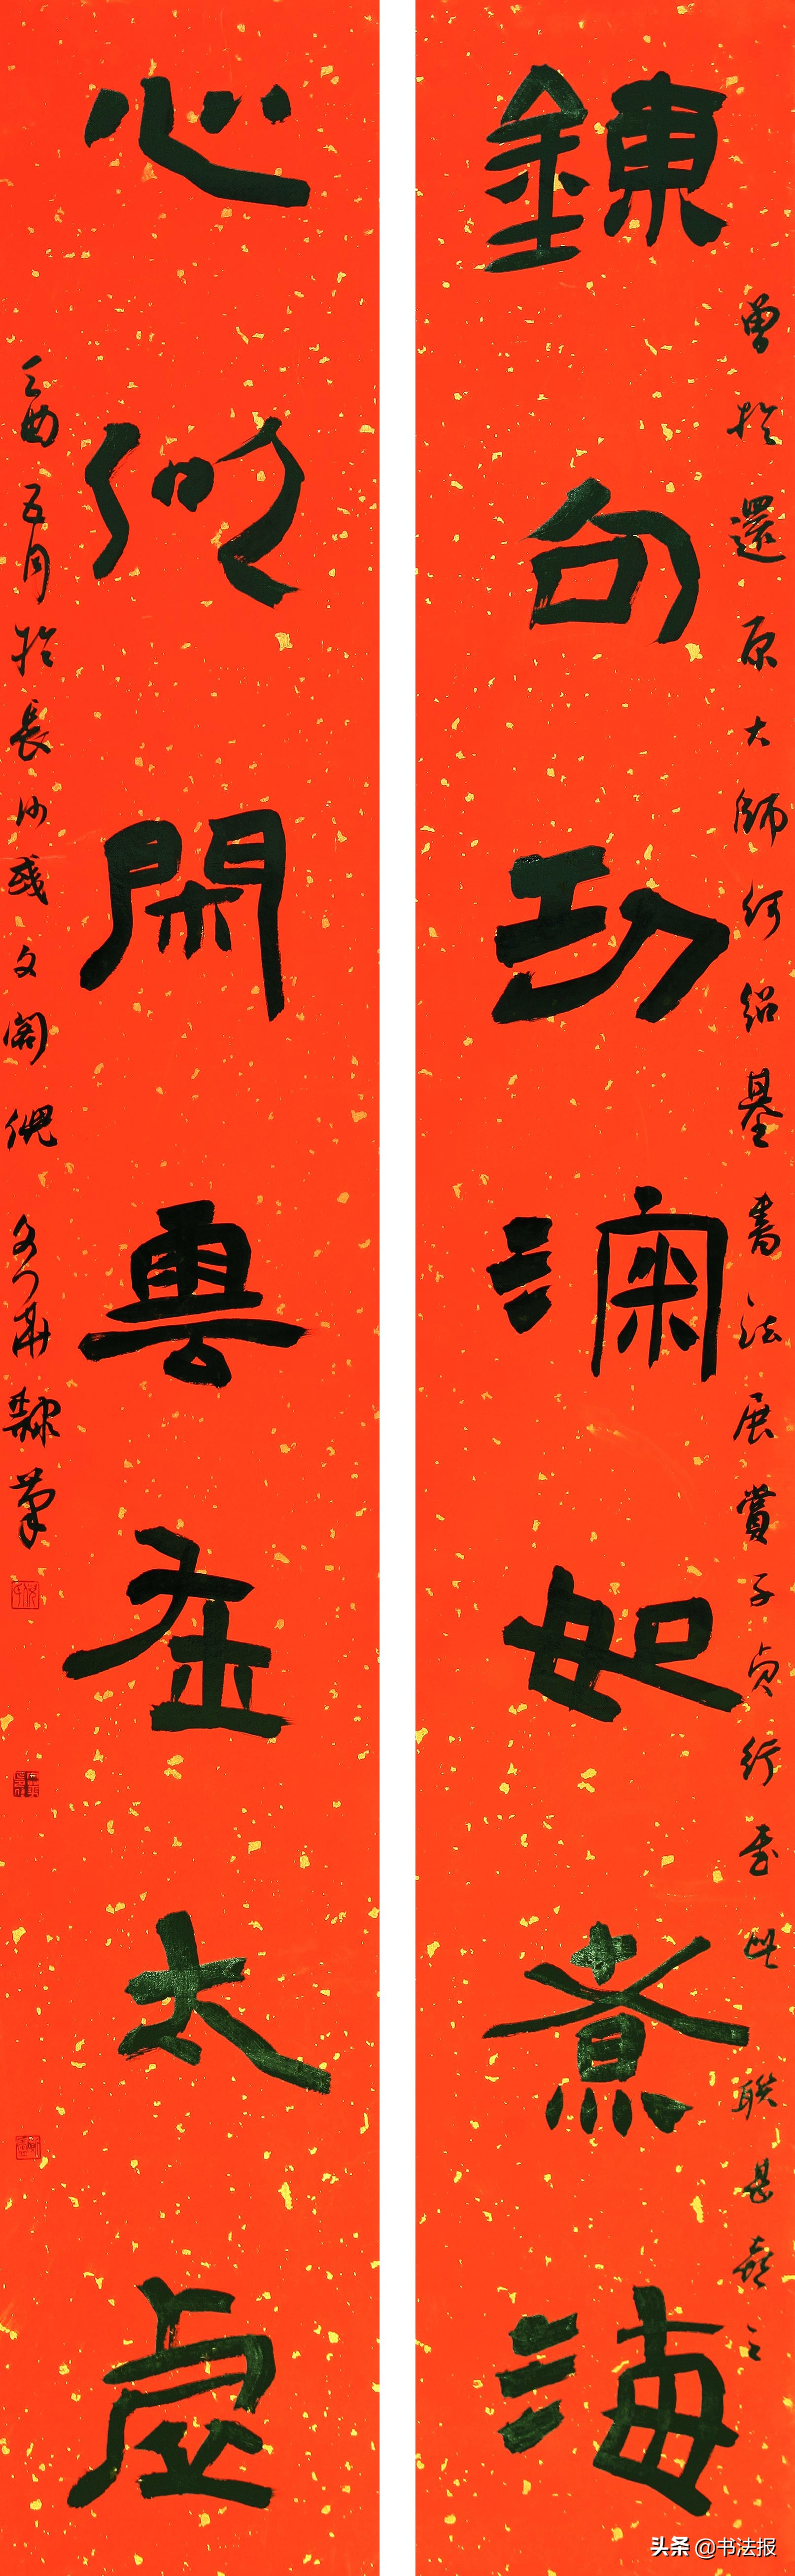 鍊句功深如煮海
曾於還原大師何紹基書法展賞子貞行書此聯甚喜之
心似閑雲在太虛
乙酉五月於長沙或文閣
隸筆
头条 @书法报